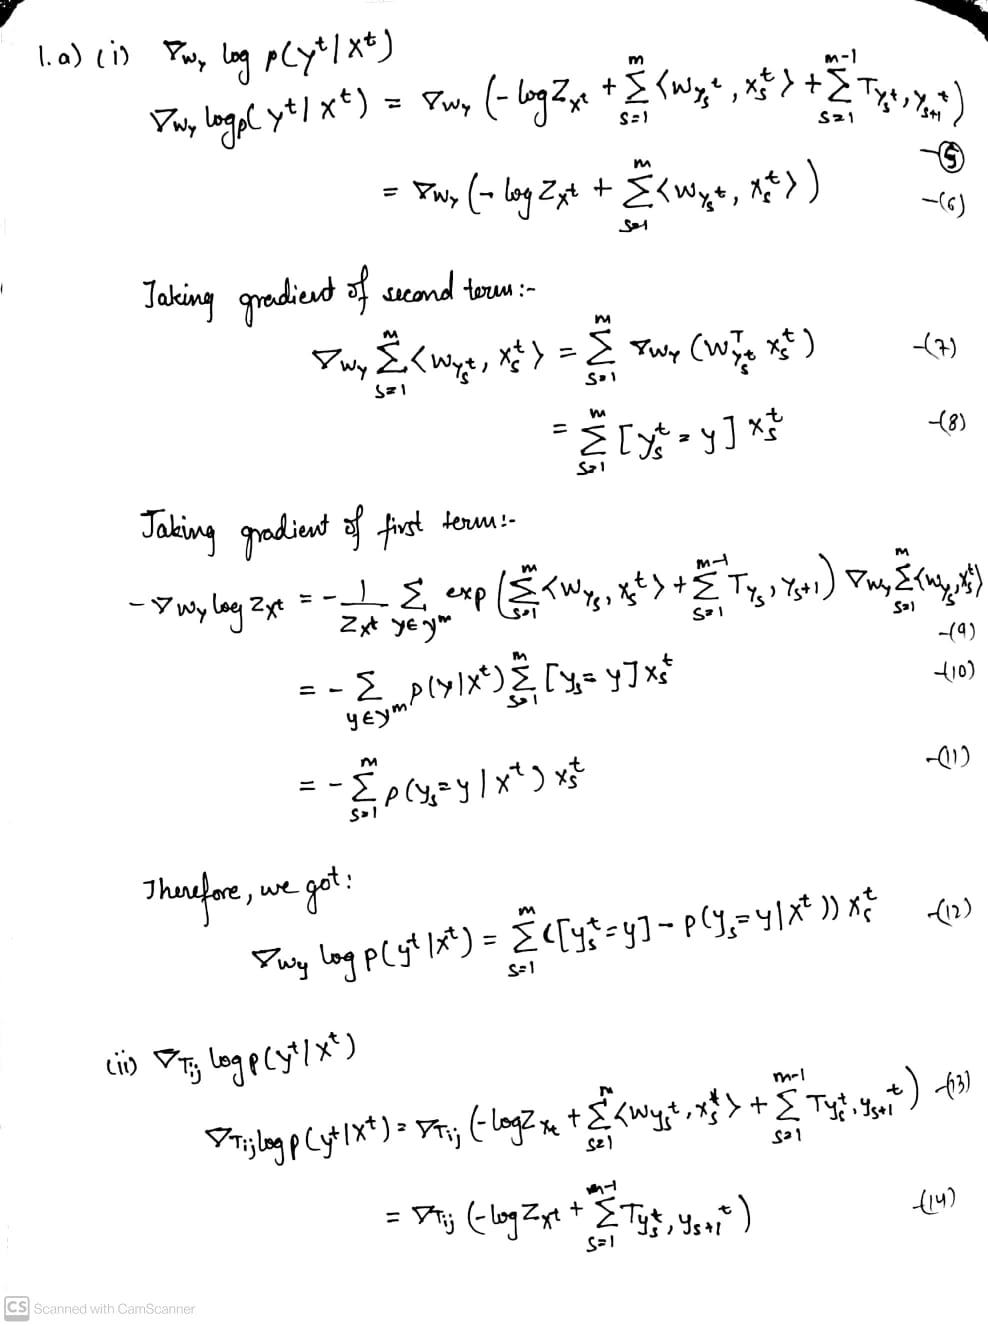 1. a) (i) ∇w_y log p(y^t | x^t)
∇w_y log p(y^t | x^t) = ∇w_y (- log Z_x^t + Σ_{s=1}^{m} ⟨w_{y_s^t}, x_s^t⟩ + Σ_{s=1}^{m-1} T_{y_s^t, y_{s+1}^t}) -(5)
= ∇w_y (- log Z_x^t + Σ_{s=1}^{m} ⟨w_{y_s^t}, x_s^t⟩) -(6)
Taking gradient of second term :-
∇w_y Σ_{s=1}^{m} ⟨w_{y_s^t}, x_s^t⟩ = Σ_{s=1}^{m} ∇w_y (w_{y_s^t}^T x_s^t) -(7)
= Σ_{s=1}^{m} [y_s^t = y] x_s^t -(8)
Taking gradient of first term :-
- ∇w_y log Z_x^t = - 1/Z_x^t Σ_{y∈y^m} exp (Σ_{s=1}^{m} ⟨w_{y_s}, x_s^t⟩ + Σ_{s=1}^{m-1} T_{y_s, y_{s+1}}) ∇w_y Σ_{s=1}^{m} ⟨w_{y_s}, x_s^t⟩ -(9)
= - Σ_{y∈y^m} p(y|x^t) Σ_{s=1}^{m} [y_s = y] x_s^t -(10)
= - Σ_{s=1}^{m} p(y_s = y | x^t) x_s^t -(11)
Therefore, we got :
∇w_y log p(y^t | x^t) = Σ_{s=1}^{m} ([y_s^t = y] - p(y_s = y | x^t)) x_s^t -(12)
(ii) ∇T_ij log p(y^t | x^t)
∇T_ij log p(y^t | x^t) = ∇T_ij (- log Z_x^t + Σ_{s=1}^{m} ⟨w_{y_s^t}, x_s^t⟩ + Σ_{s=1}^{m-1} T_{y_s^t, y_{s+1}^t}) -(13)
= ∇T_ij (- log Z_x^t + Σ_{s=1}^{m-1} T_{y_s^t, y_{s+1}^t}) -(14)
CS Scanned with CamScanner